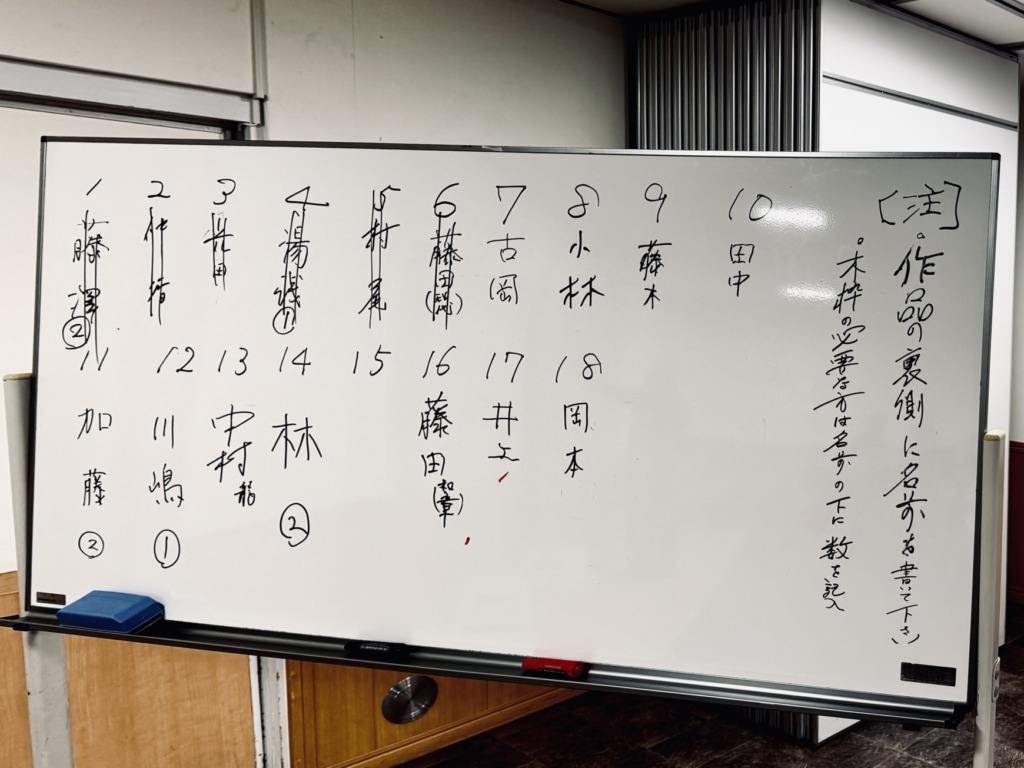 [注]
。作品の裏側に名前を書いて下さい
。木枠の必要な方は名前の下に数を記入
1 藤澤 ②
2 仲
3 田
4 湯 ①
5 村尾
6 藤田
7 古岡
8 小林
9 藤木
10 田中
11 加藤 ②
12 川嶋 ①
13 中村
14 林 ②
15
16 藤田(和章)
17 井上
18 岡本